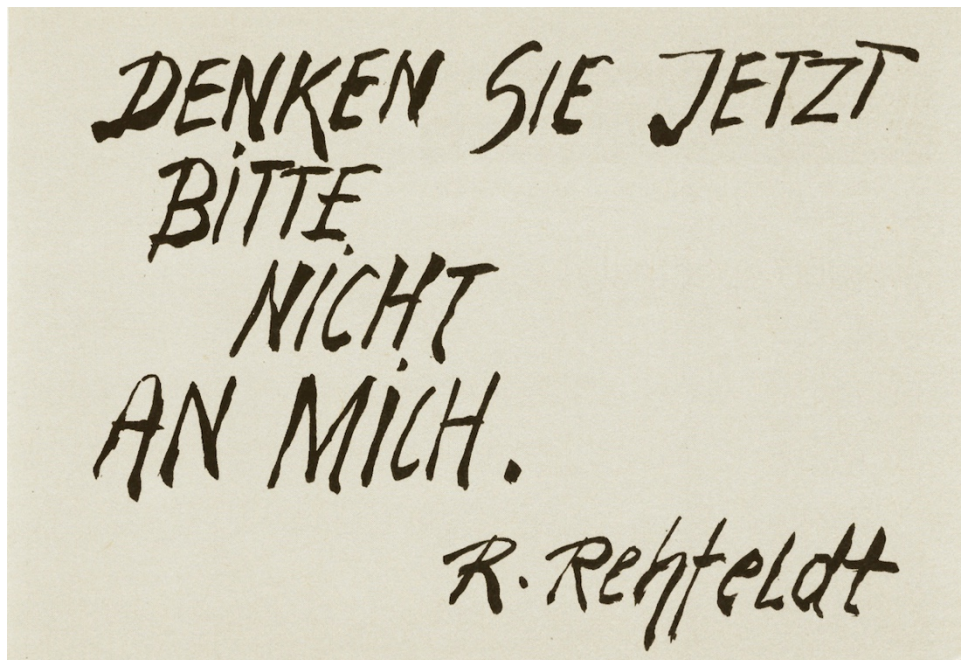 DENKEN SIE JETZT
BITTE
NICHT
AN MICH.
R. Rehfeldt